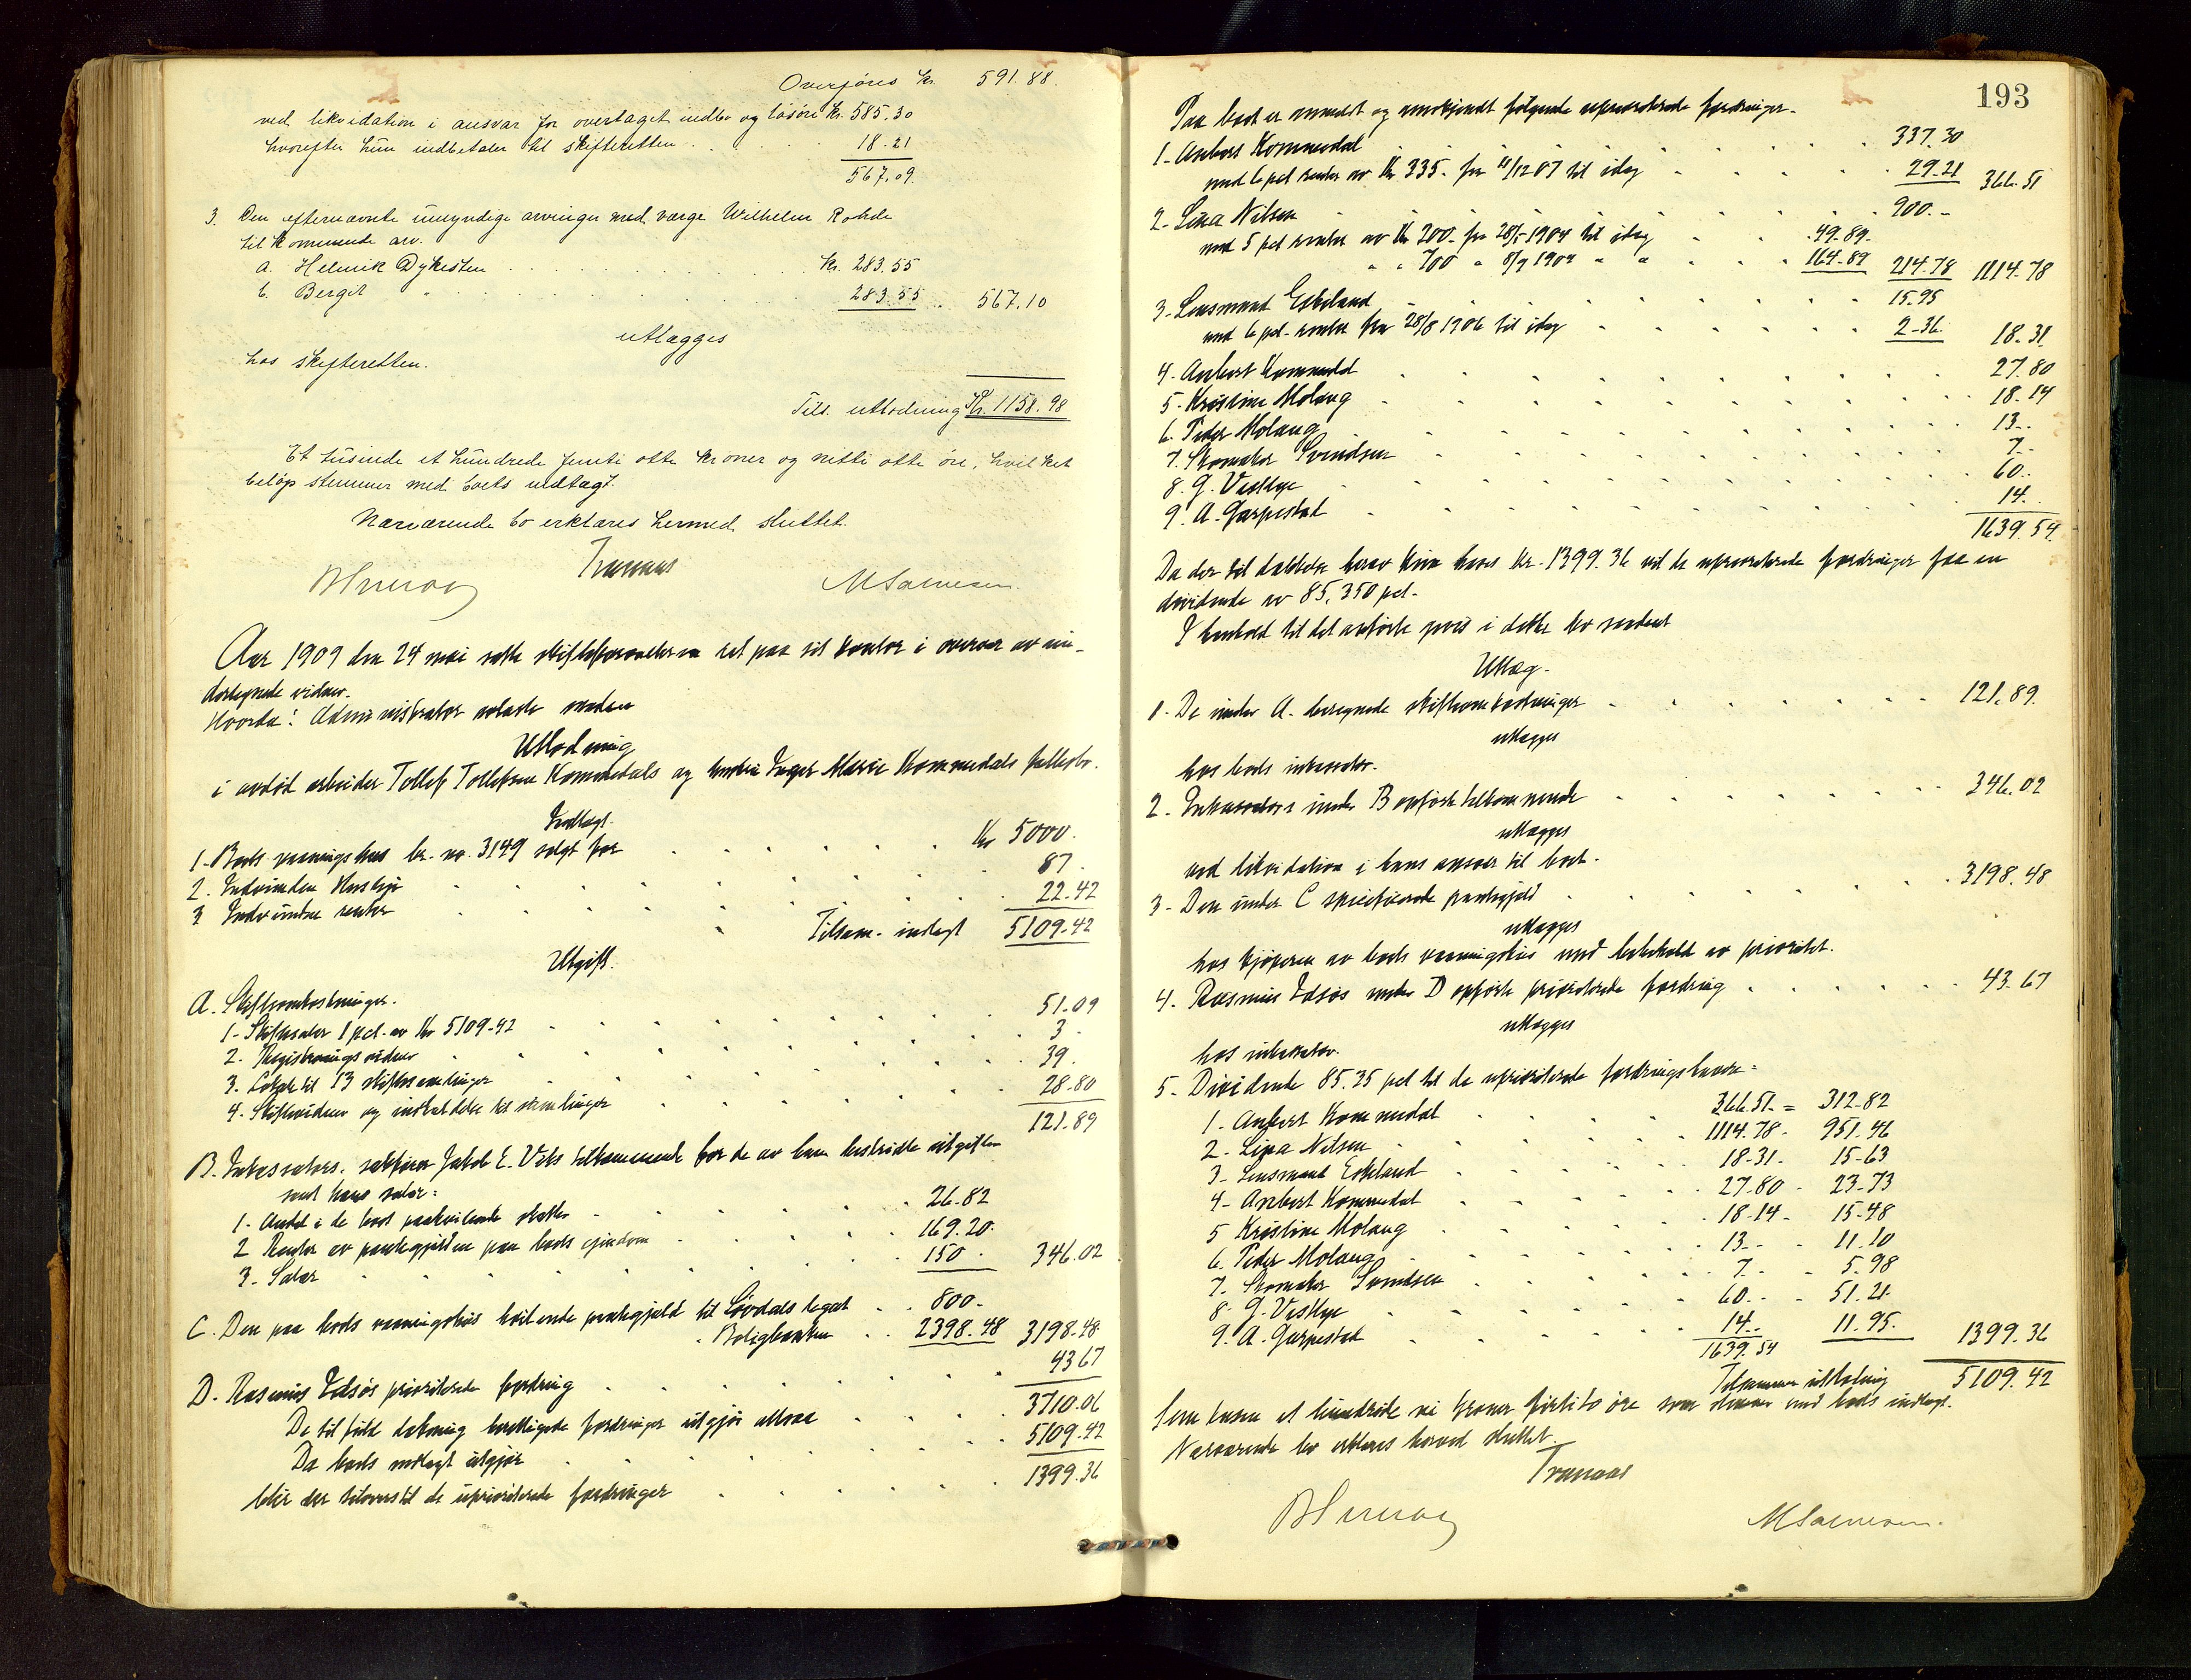 Overføres Kr. 591.88.
ved likvidation i ansvar for overtaget indbo og løsøre Kr. 585.30
hvorefter hun indbetaler til skifteretten . . . 18.21
567.09.
3. Den efternævnte umyndige arvinger med værge Wilhelm Rohde
tilkommende arv.
a. Helmik Dyhesten . . . Kr. 283.55
b. Bergit " . . . 283.55 . . 567.10
utlægges
hos skifteretten.
Tils. utlodning Kr. 1158.98
Et tusinde et hundrede femti otte kroner og nitti otte øre, hvilket
beløp stemmer med boets indtægt.
Nærværende bo erklæres hermed sluttet.
Tranaas
M Salvesen.
Aar 1909 den 24 mai satte skifteforvalteren ret paa sit kontor i overvær av un-
dertegnede vidner.
Hvorda: Administrator avlagte saadan
Utlodning
i avdød arbeider Tollef Tollefsen Kommedals og hustru Inger Marie Kommedals fællesbo.
Indtægt.
1. Boets vaaningshus br. no. 3149 solgt for . . . Kr 5000.
2. Indvunden Husleje . . . 87.
3 Indvundne renter . . . 22.42
Tilsam. indtægt 5109.42
Utgift.
A. Skifteomkostninger.
1. Skiftesalær 1 pct. av Kr 5109.42 . . . 51.09
2. Registreringsvidner . . . 3.
3. Lokale til 13 skiftesamlinger . . . 39.
4. Skiftevidner og indkaldelse til samlinger . . . 28.80
121.89
B. Inkassators, sakfører Jakob E. Viks tilkommende for de av ham bestridte utgifter
samt hans salær:
1. Andel i de boet paahvilende skatter . . . 26.82
2 Renter av pantegjælden paa boets eiendom . . . 169.20.
3. Salær . . . 150. 346.02.
C. Den paa boets vaaningshus hvilende pantegjæld til Løvdals legat . . 800.
" Boligbanken . . 2398.48 3198.48
D. Rasmus Idsøs prioriterede fordring . . . 43 67
De til fuld dækning berettigede fordringer utgjør altsaa . . . 3710.06
Da boets indtægt utgjør . . . 5109.42
blir der tilovers til de uprioriterede fordringer . . . 1399.36
193
Paa boet er anmeldt og anerkjendt følgende uprioriterede fordringer.
1. Anbert Kommedal . . . 337.30
med 6 pct renter av Kr 335. fra 11/12 07 til idag . . . 29.21 366.51
2. Lina Nilsen . . . 900.-
med 5 pct renter av Kr 200. fra 28/5 1904 til idag . . 49.89.
" " 700 " 8/9 1904 " " . . 164.89 214.78 1114.78
3. Lensmand Eskeland . . . 15.95
med 6 pct. renter fra 28/8 1906 til idag . . . 2.36. 18.31.
4. Anbert Kommedal . . . 27.80
5. Kristine Molaug . . . 18.14
6. Peder Molaug . . . 13..
7. Skomaker Svendsen . . . 7..
8. G. Vestbye . . . 60.
9. A. Garpestad . . . 14.
1639.54.
Da der til dækkelse herav kun haves kr. 1399.36 vil de uprioriterede fordringer faa en
dividende av 85,350 pct.
I henhold til det anførte gives i dette bo saadant
Utlæg.
1. De under A. beregnede skifteomkostninger . . . 121.89.
utlægges
hos boets inkassator.
2. Inkassators under B anførte tilkommende . . . 346.02
utlægges
ved likvidation i hans ansvar til boet.
3. Den under C specificerede pantegjæld . . . 3198.48
utlægges
hos kjøperen av boets vaaningshus med bibehold av prioritet.
4. Rasmus Idsøs under D opførte prioriterede fordring . . . 43.67
utlægges
hos inkassator.
5. Dividende 85.35 pct til de uprioriterede fordringshavere:
1. Anbert Kommedal . . . 366.51. = 312.82
2. Lina Nilsen . . . 1114.78. 951.46
3. Lensmand Eskeland . . . 18.31. 15.63
4. Anbert Kommedal . . . 27.80 . 23.73
5 Kristine Molaug . . . 18.14. 15.48
6. Peder Molaug . . . 13.. . 11.10
7. Skomaker Svendsen . . . 7.. . 5.98
8. G. Vestbye . . . 60.. . 51.21.
9. A. Garpestad . . . 14.. 11.95. 1399.36
1639.54
Tilsammen utlodning 5109.42
fem tusen et hundrede ni kroner førtito øre som stemmer med boets indtægt.
Nærværende bo erklæres herved sluttet.
Tranaas
M Salvesen.